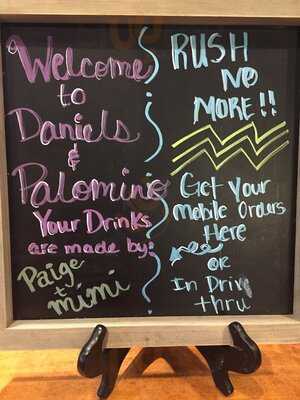 Welcome
to
Daniels
&
Palomino
Your Drinks
are made by:
Paige
& mimi
RUSH
No
MORE!!
Get Your
Mobile Orders
Here
OR
In Drive
thru